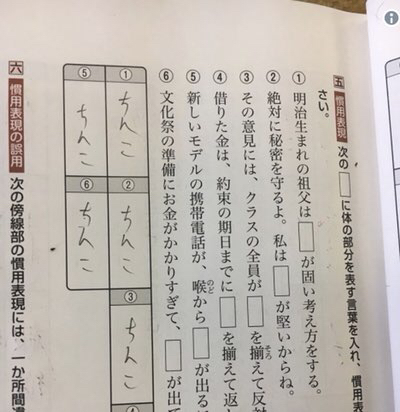 五 慣用表現 次の□に体の部分を表す言葉を入れ、慣用表
さい。
① 明治生まれの祖父は□が固い考え方をする。
② 絶対に秘密を守るよ。私は□が堅いからね。
③ その意見には、クラスの全員が□を揃えて反対
④ 借りた金は、約束の期日までに□を揃えて返
⑤ 新しいモデルの携帯電話が、喉から□が出るほ
⑥ 文化祭の準備にお金がかかりすぎて、□が出て
① ちんこ
② ちんこ
③ ちんこ
④
⑤ ちんこ
⑥ ちんこ
六 慣用表現の誤用 次の傍線部の慣用表現には、一か所間違